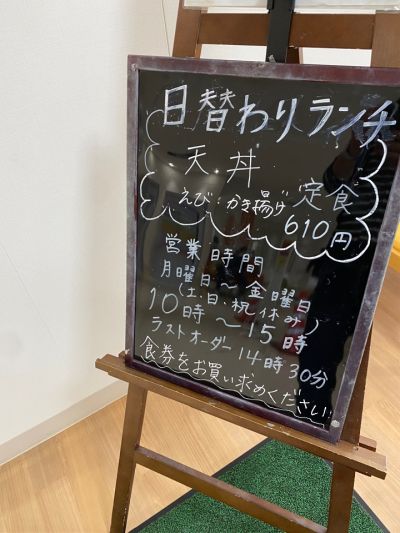 日替わりランチ
天丼
えび・かき揚げ 定食
610円
営業時間
月曜日～金曜日
(土・日・祝休み)
10時～15時
ラストオーダー14時30分
食券をお買い求めください!